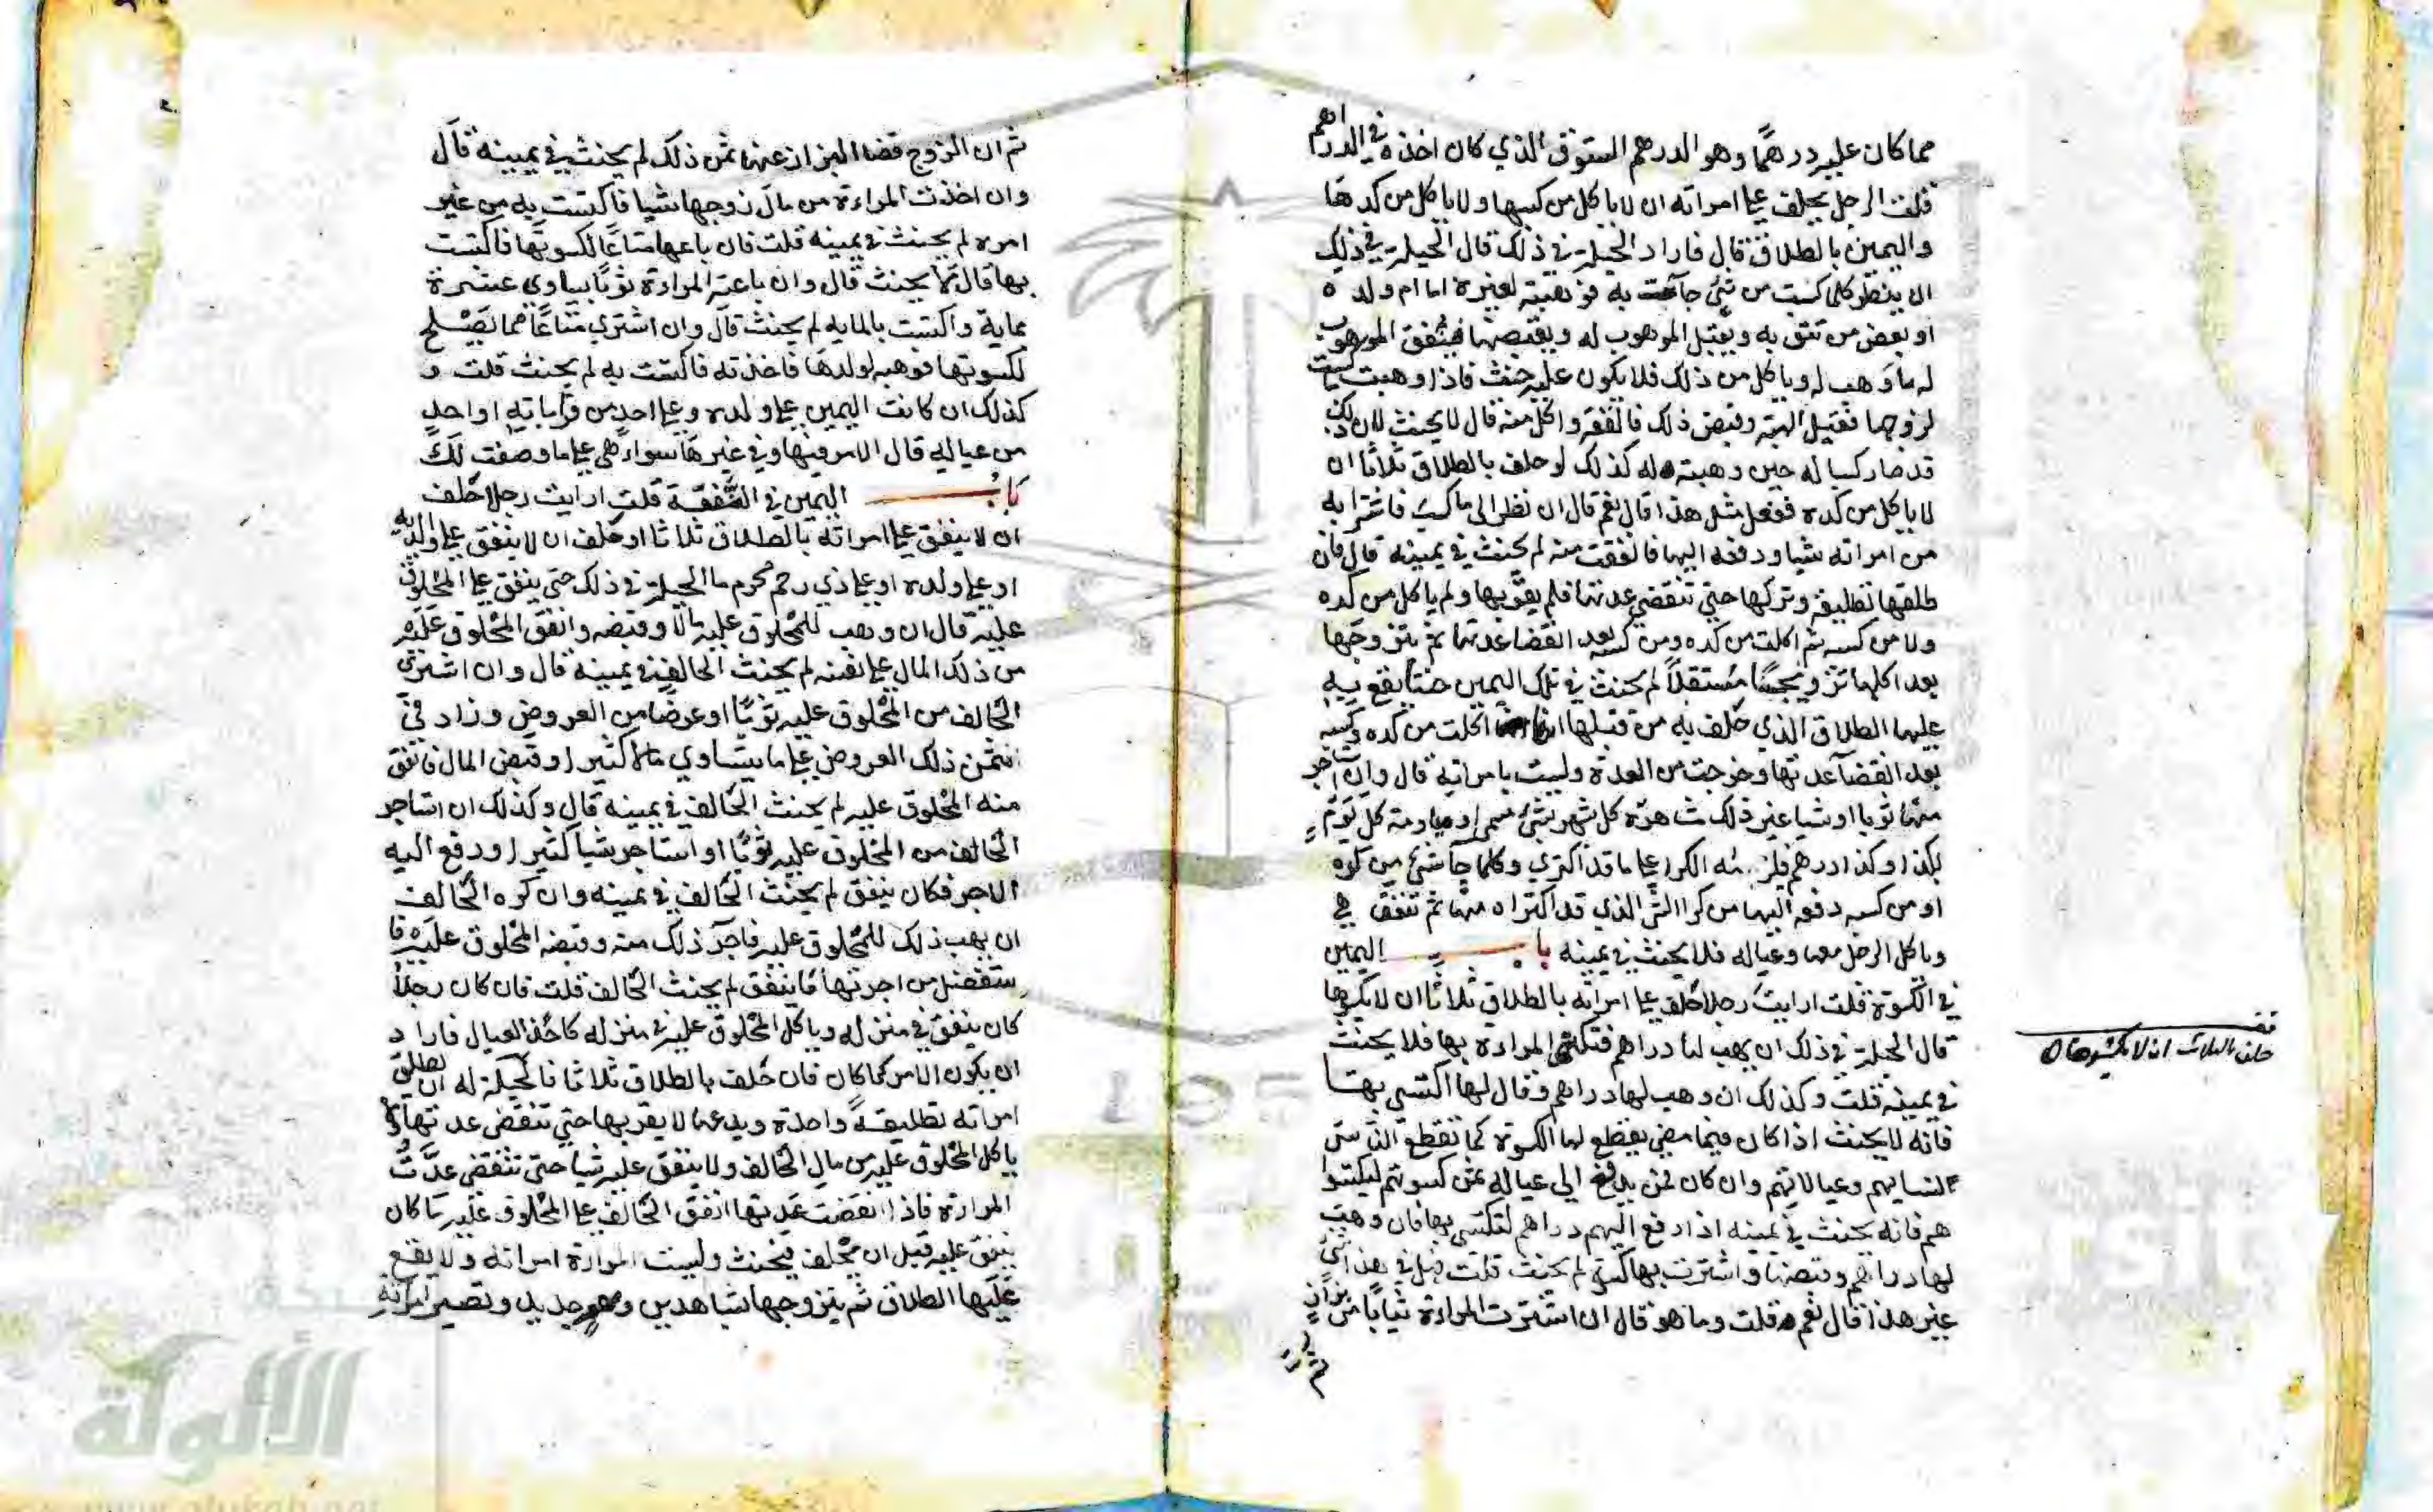 مما كان عليه درهما وهو الدرهم الستوق الذي كان اخذه في الدراهم
قلت الرجل يحلف على امراته ان لا ياكل من كسبها ولا ياكل من كدها
واليمين بالطلاق قال فاراد الحيلة في ذلك قال الحيلة في ذلك
ان ينظر كلما كسبت من شئ جآءت به فوهبته لغيره اما ام ولده
او بعض من تثق به ويقبل الموهوب له ويقبضها فينفق الموهوب
له ما وهب له وياكل من ذلك فلا يكون عليه حنث فاذا وهبت كسبت
لزوجها فقبل الهبة وقبض ذلك فانفقه واكل منه قال لا يحنث لان ذلك
قد صار كسبا له حين وهبته له كذلك لو حلف بالطلاق ثلاثا ان
لا ياكل من كده ففعل مثل هذا قال نعم قال ان نظر الى ما كسب فاشترا به
من امراته شيا ودفعه اليها فانفقت منه لم يحنث في يمينه قال فان
طلقها تطليقة وتركها حتى تنقضي عدتها فلم يقربها ولم ياكل من كده
ولا من كسبه ثم اكلت من كده ومن كسبه بعد انقضا عدتها ثم يتزوجها
بعد اكلها تزويجًا مستقبلًا لم يحنث في تلك اليمين حنثا يقع به
عليها الطلاق الذي حلف به من قبلها انها اكلت من كده وكسبه
بعد انقضآ عدتها وخرجت من العدة وليست بامراته قال وان استاجر
منها ثوبا او شيا غير ذلك مشاهرة كل شهر بشئ مسمى او مياومة كل يوم
بكذا وكذا درهم فلزمه الكرا على ما قد اكتري وكلما جآ شئ من كده
او من كسبه دفعه اليها من كرا الشئ الذي قد اكتراه منها ثم تنفق هي
وياكل الرجل معها وعياله فلا يحنث في يمينه باب اليمين
في الكسوة قلت ارايت رجلا حلف على امراته بالطلاق ثلاثا ان لا يكسوها
قال الحيلة في ذلك ان يهب لها دراهم فتكتسي المراءة بها فلا يحنث
في يمينه قلت وكذلك ان وهب لها دراهم وقال لها اكتسي بها
فانه لا يحنث اذا كان فيما مضى يقطع لها الكسوة كما تقطع الناس
لنسايهم وعيالاتهم وان كان ممن يدفع الى عياله ثمن كسوتهم ليكتسوا
هم فانه يحنث في يمينه اذا دفع اليهم دراهم لتكتسي بها فان وهب
لها دراهم وقبضتها واشترت بها كسوة لم يحنث قلت فهل في هذا شئ
غير هذا قال نعم قلت وما هو قال ان اشترت المراءة ثيابا من بزاز
حلف بالطلاق ان لا يكسوها
ثم ان الزوج قضا البزاز عنها ثمن ذلك لم يحنث في يمينه قال
وان اخذت المراءة من مال زوجها شيا فاكتست به من غير
امره لم يحنث في يمينه قلت فان باعها متاعا لكسوتها فاكتست
بها قال لا يحنث قال وان باعته المراءة ثوبًا يساوي عشرة
بماية واكتست بالمايه لم يحنث قال وان اشترى متاعًا مما يصلح
لكسوتها فوهبه لولدها فاخذته فاكتست به لم يحنث قلت و
كذلك ان كانت اليمين على ولده وعلى احد من قراباته او احد
من عياله قال الامر فيها وفي غيرها سواء هي على ما وصفت لك
باب اليمين في النفقة قلت ارايت رجلا حلف
ان لا ينفق على امراته بالطلاق ثلاثا او حلف ان لا ينفق على والديه
او على ولده او على ذي رحم محرم ما الحيلة في ذلك حتى ينفق على المحلوف
عليه قال ان وهب للمحلوف عليه مالا وقبضه وانفق المحلوف عليه
من ذلك المال على نفسه لم يحنث الحالف في يمينه قال وان اشترى
الحالف من المحلوف عليه ثوبًا او عرضا من العروض وزاد في
ثمن ذلك العروض على ما يتساوي مالا كثيرا وقبض المال فانفق
منه المحلوف عليه لم يحنث الحالف في يمينه قال وكذلك ان استاجر
الحالف من المحلوف عليه ثوبًا او استاجر شيا كثيرا ودفع اليه
الاجر فكان ينفق لم يحنث الحالف في يمينه وان كره الحالف
ان يهب ذلك للمحلوف عليه فاجر ذلك منه وقبضه المحلوف عليه فا
ستفضل من اجرتها فاينفق لم يحنث الحالف قلت فان كان رجلا
كان ينفق في منزله وياكل المحلوف عليه في منزله كاحد العيال فاراد
ان يكون الامر كما كان فان حلف بالطلاق ثلاثا فالحيلة له ان يطلق
امراته تطليقة واحدة ويدعها لا يقربها حتى تنقضي عدتها ولا
ياكل المحلوف عليه من مال الحالف ولا ينفق عليه شيا حتى تنقضي عدت
المراءة فاذا انقضت عدتها انفق الحالف على المحلوف عليه ما كان
ينفق عليه قبل ان يحلف فيحنث وليست المراءة امراته ولا يقع
عليها الطلاق ثم يتزوجها بشاهدين ومهر جديد وتصير امراته
الألوكة